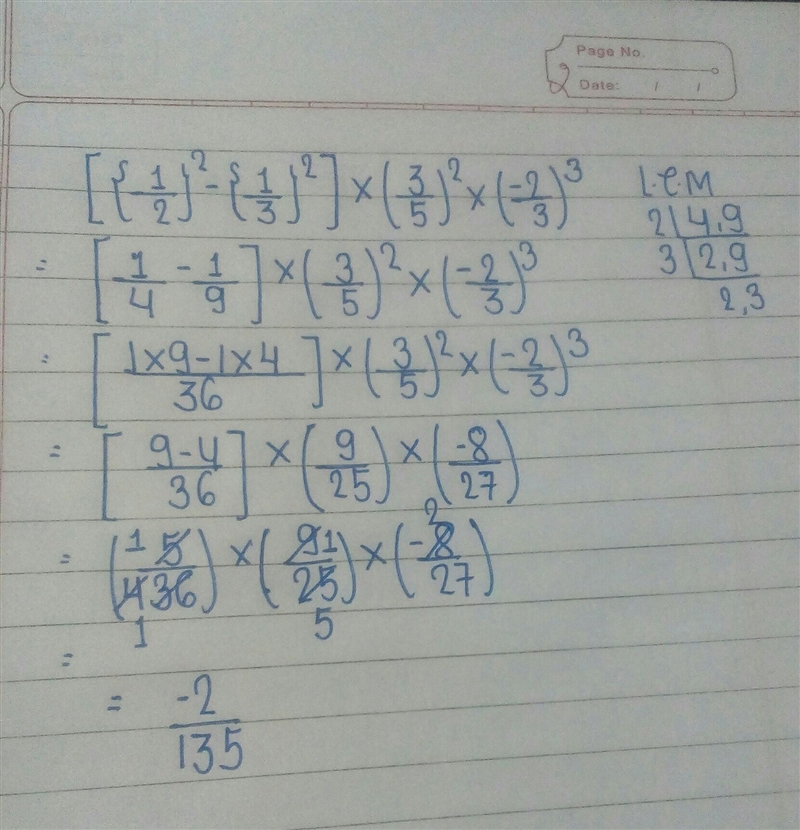 Page No.
Date: / /
[{-1/2}² - {1/3}²] × (3/5)² × (-2/3)³
L.C.M
2 | 4,9
3 | 2,9
2,3
= [1/4 - 1/9] × (3/5)² × (-2/3)³
= [1×9-1×4/36] × (3/5)² × (-2/3)³
= [9-4/36] × (9/25) × (-8/27)
= (1 5/4 36 1) × (9 1/25 5) × (-8 2/27)
=
= -2/135